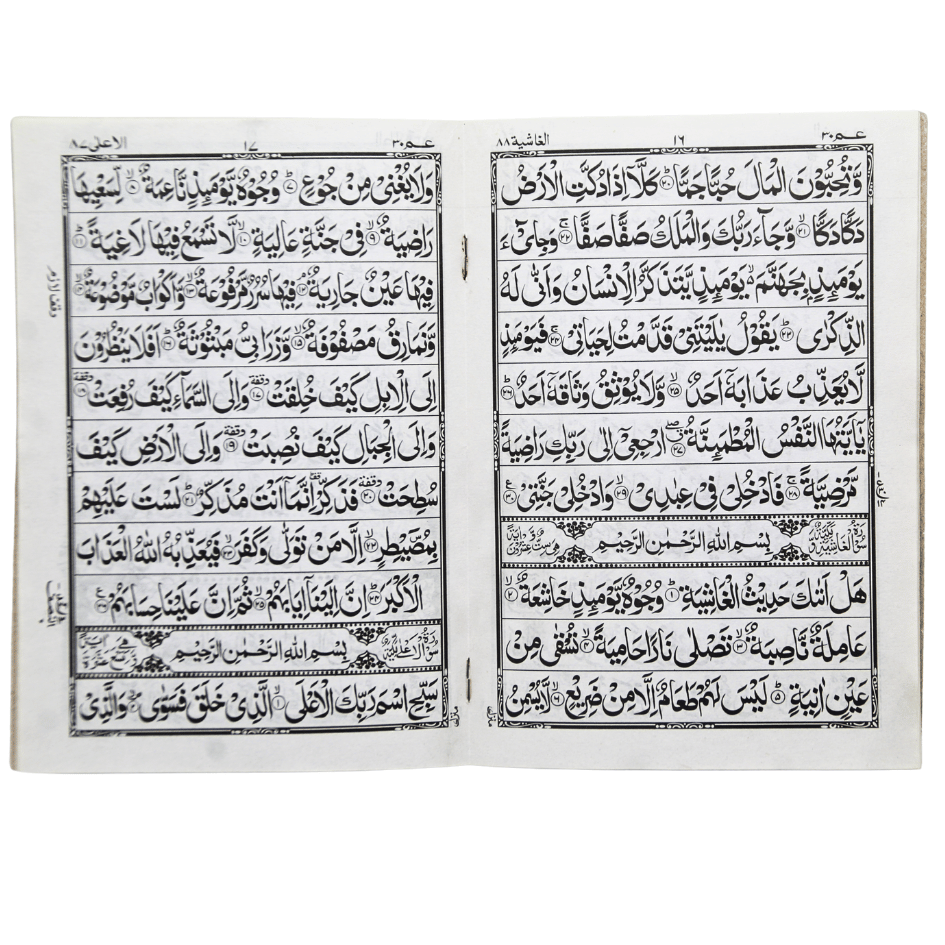 عم ٣٠ ١٦ الغاشية ٨٨
وَّتُحِبُّوۡنَ الۡمَالَ حُبًّا جَمًّا ؕ‏ ﴿۲۰﴾ كَلَّاۤ اِذَا دُكَّتِ الۡاَرۡضُ
دَكًّا دَكًّا ۙ‏ ﴿۲۱﴾ وَّجَآءَ رَبُّكَ وَالۡمَلَكُ صَفًّا صَفًّا ۚ‏ ﴿۲۲﴾ وَجِایْٓءَ
يَوۡمَٮِٕذٍۢ بِجَهَنَّمَ ۙ يَوۡمَٮِٕذٍ يَّتَذَكَّرُ الۡاِنۡسَانُ وَاَنّٰى لَهُ
الذِّكۡرٰى ؕ‏ ﴿۲۳﴾ يَقُوۡلُ يٰلَيۡتَنِىۡ قَدَّمۡتُ لِحَـيَاتِى‌ۚ‏ ﴿۲۴﴾ فَيَوۡمَٮِٕذٍ
لَّا يُعَذِّبُ عَذَابَهٗۤ اَحَدٌ ۙ‏ ﴿۲۵﴾ وَّلَا يُوۡثِقُ وَثَاقَهٗۤ اَحَدٌ ؕ‏ ﴿۲۶﴾
يٰۤاَيَّتُهَا النَّفۡسُ الۡمُطۡمَٮِٕنَّةُ ‏ ﴿۲۷﴾ ارۡجِعِىۡۤ اِلٰى رَبِّكِ رَاضِيَةً
مَّرۡضِيَّةً‌ ۚ‏ ﴿۲۸﴾ فَادۡخُلِىۡ فِىۡ عِبٰدِىۙ‏ ﴿۲۹﴾ وَادۡخُلِىۡ جَنَّتِى ‏ ﴿۳۰﴾
سُوۡرَةُ الۡغَاشِيَةِ مَكِّيَّةٌ بِسۡمِ اللّٰهِ الرَّحۡمٰنِ الرَّحِيۡمِ وَّهِىَ سِتٌّ وَّعِشۡرُوۡنَ اٰيَةً
هَلۡ اَتٰٮكَ حَدِيۡثُ الۡغَاشِيَةِ ؕ‏ ﴿۱﴾ وُجُوۡهٌ يَّوۡمَٮِٕذٍ خَاشِعَةٌ ۙ‏ ﴿۲﴾
عَامِلَةٌ نَّاصِبَةٌ ۙ‏ ﴿۳﴾ تَصۡلٰى نَارًا حَامِيَةً ۙ‏ ﴿۴﴾ تُسۡقٰى مِنۡ
عَيۡنٍ اٰنِيَةٍ ؕ‏ ﴿۵﴾ لَـيۡسَ لَهُمۡ طَعَامٌ اِلَّا مِنۡ ضَرِيۡعٍۙ‏ ﴿۶﴾ لَّا يُسۡمِنُ
عم ٣٠ ١٧ الاعلى ٨٧
وَلَا يُغۡنِىۡ مِنۡ جُوۡعٍؕ‏ ﴿۷﴾ وُجُوۡهٌ يَّوۡمَٮِٕذٍ نَّاعِمَةٌ ۙ‏ ﴿۸﴾ لِّسَعۡيِهَا
رَاضِيَةٌ ۙ‏ ﴿۹﴾ فِىۡ جَنَّةٍ عَالِيَةٍۙ‏ ﴿۱۰﴾ لَّا تَسۡمَعُ فِيۡهَا لَاغِيَةً ؕ‏ ﴿۱۱﴾
فِيۡهَا عَيۡنٌ جَارِيَةٌ‌ ۘ‏ ﴿۱۲﴾ فِيۡهَا سُرُرٌ مَّرۡفُوۡعَةٌ ۙ‏ ﴿۱۳﴾ وَّاَكۡوَابٌ مَّوۡضُوۡعَةٌ ۙ‏ ﴿۱۴﴾
وَّنَمَارِقُ مَصۡفُوۡفَةٌ ۙ‏ ﴿۱۵﴾ وَّزَرَابِىُّ مَبۡثُوۡثَةٌ ؕ‏ ﴿۱۶﴾ اَفَلَا يَنۡظُرُوۡنَ
اِلَى الۡاِ بِلِ كَيۡفَ خُلِقَتۡ وقفة ﴿۱۷﴾ وَاِلَى السَّمَآءِ كَيۡفَ رُفِعَتۡ وقفة ﴿۱۸﴾
وَاِلَى الۡجِبَالِ كَيۡفَ نُصِبَتۡ وقفة ﴿۱۹﴾ وَاِلَى الۡاَرۡضِ كَيۡفَ
سُطِحَتۡ وقفة ﴿۲۰﴾ فَذَكِّرۡ ؕ اِنَّمَاۤ اَنۡتَ مُذَكِّرٌ ؕ‏ ﴿۲۱﴾ لَـسۡتَ عَلَيۡهِمۡ
بِمُصَۜيۡطِرٍۙ‏ ﴿۲۲﴾ اِلَّا مَنۡ تَوَلّٰى وَكَفَرَۙ‏ ﴿۲۳﴾ فَيُعَذِّبُهُ اللّٰهُ الۡعَذَابَ
الۡاَكۡبَرَؕ‏ ﴿۲۴﴾ اِنَّ اِلَيۡنَاۤ اِيَابَهُمۡۙ‏ ﴿۲۵﴾ ثُمَّ اِنَّ عَلَيۡنَا حِسَابَهُمْ ‏ ﴿۲۶﴾
سُوۡرَةُ الۡاَعۡلٰى مَكِّيَّةٌ بِسۡمِ اللّٰهِ الرَّحۡمٰنِ الرَّحِيۡمِ وَّهِىَ تِسۡعَ عَشۡرَةَ اٰيَةً
سَبِّحِ اسۡمَ رَبِّكَ الۡاَعۡلَىۙ‏ ﴿۱﴾ الَّذِىۡ خَلَقَ فَسَوّٰى ۙ‏ ﴿۲﴾ وَالَّذِىۡ
وقف لازم